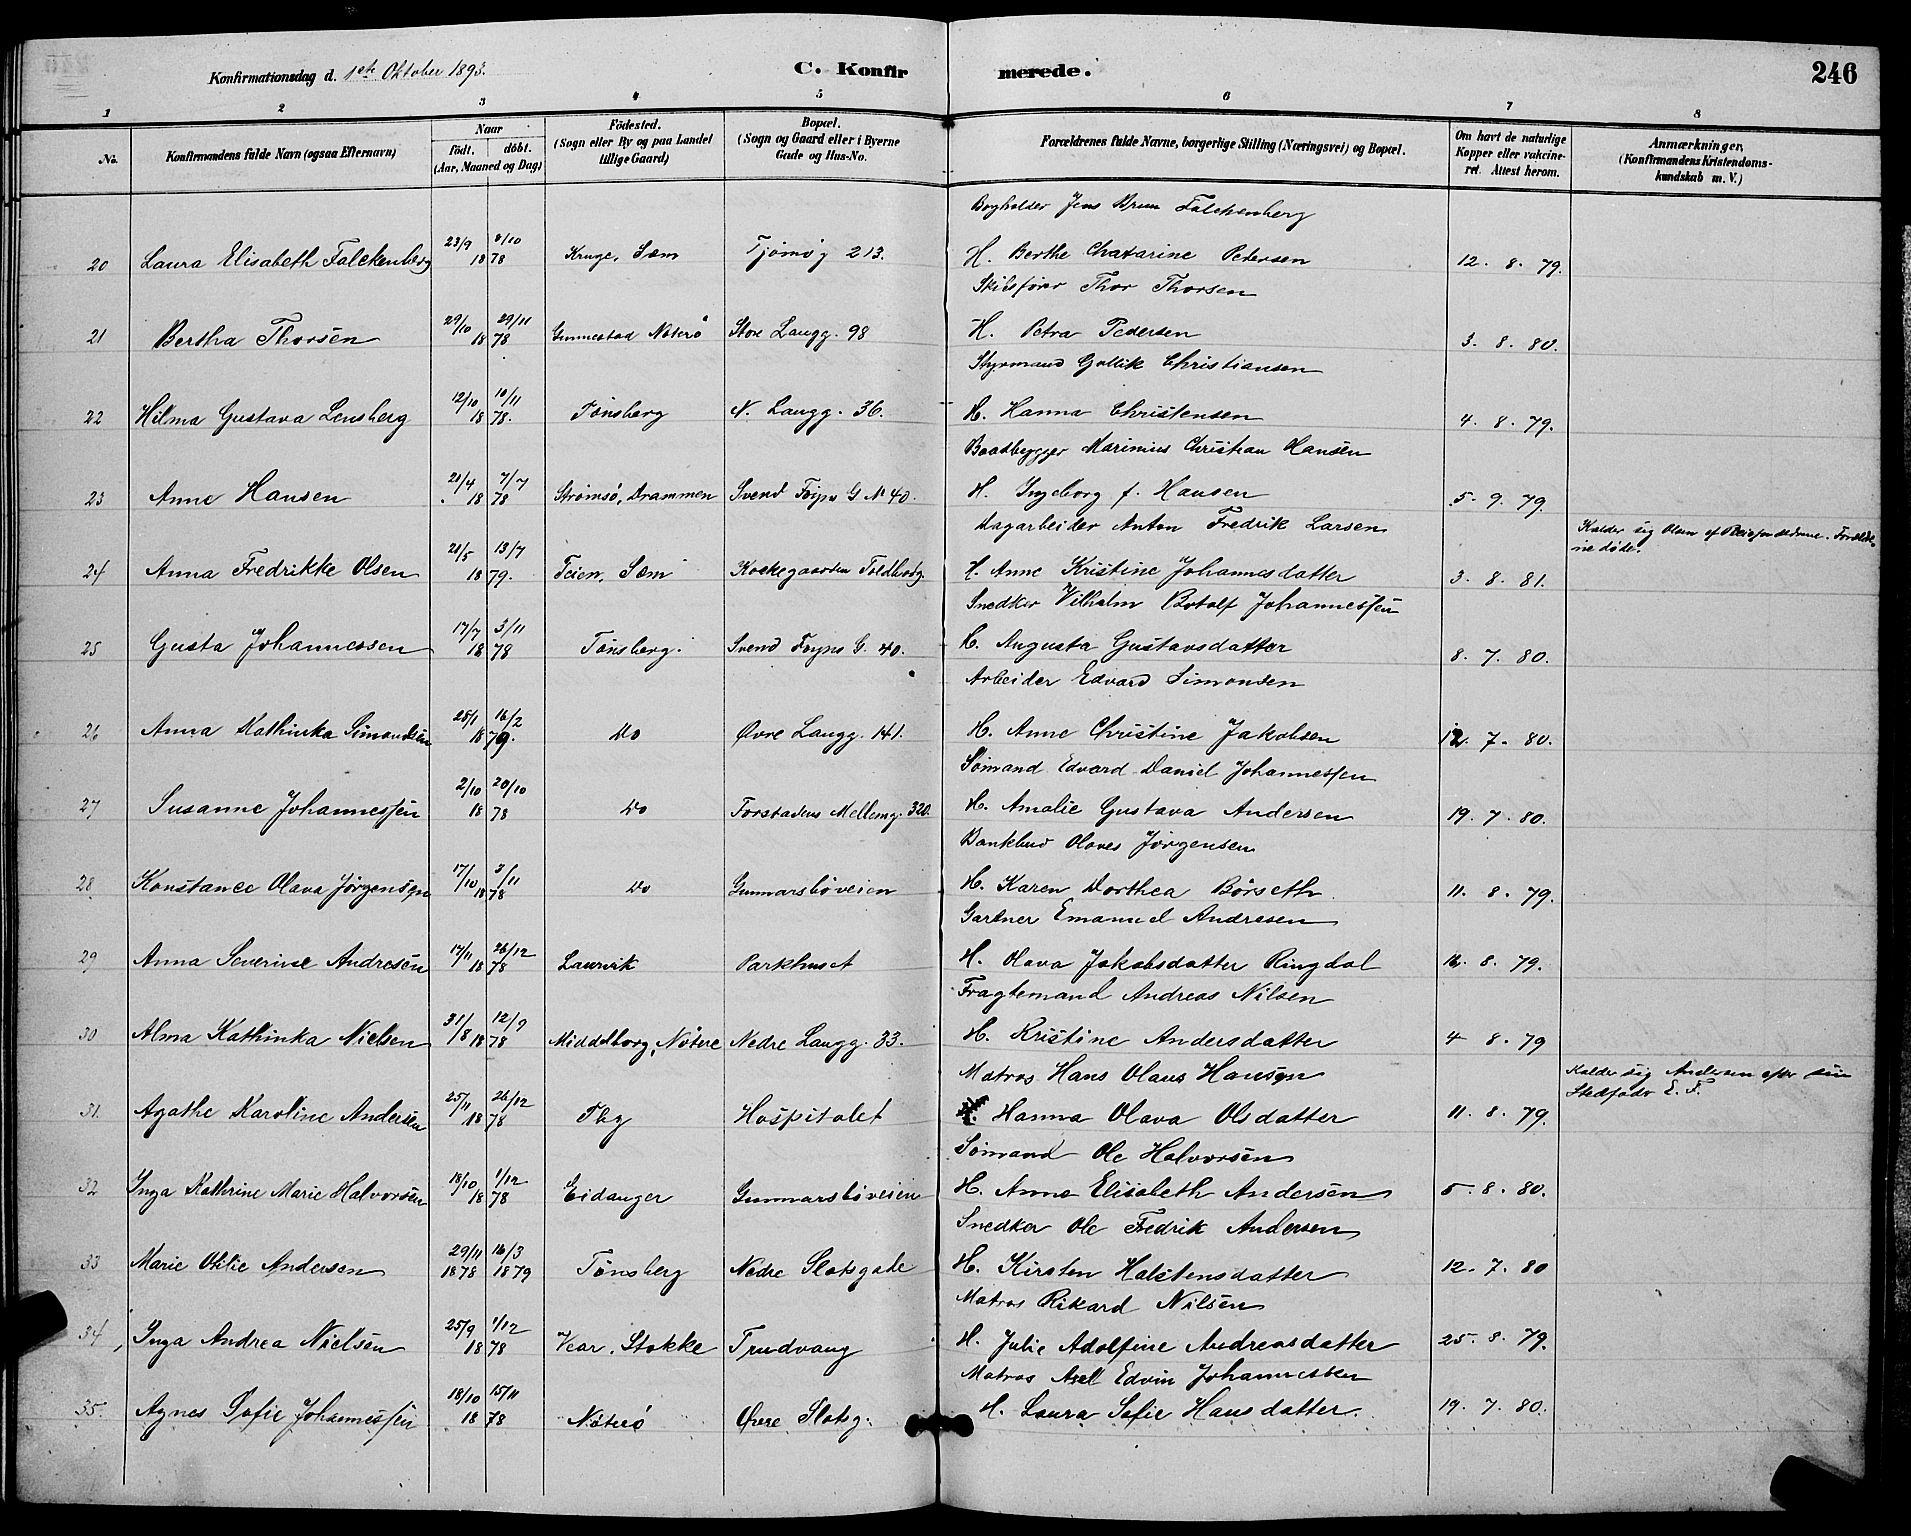 Konfirmationsdag d. 1ste Oktober 1893. C. Konfirmerede. 246
1 2 3 4 5 6 7 8
No. Konfirmandens fulde Navn (ogsaa Efternavn) Naar födt. döbt. (Aar, Maaned og Dag) Födested. (Sogn eller By og paa Landet tillige Gaard) Bopæl. (Sogn og Gaard eller i Byerne Gade og Hus-No. Forældrenes fulde Navne, borgerlige Stilling (Næringsvei) og Bopæl. Om havt de naturlige Kopper eller vakcineret. Attest herom. Anmærkninger, (Konfirmandens Kristendomskundskab m. V.)
Bogholder Jens Falchenberg
20 Laura Elisabeth Falckenberg 23/9 1878 Sæm Tjømøg 213. H. Berthe Chatarine Petersen 12. 8. 79.
Skibsfører Thor Thorsen
21 Bertha Thorsen 29/10 29/11 1878 Gunnestad Nøterö Store Langg. 98 H. Petra Pedersen 3. 8. 80.
Styrmand Gullik Christiansen
22 Hilma Gustava Lensberg 12/10 10/11 1878. Tönsberg N. Langg. 36. H. Hanna Christensen 4. 8. 79.
Baadbygger Marinius Christian Hansen
23 Anne Hansen 21/4 7/7 1878 Strømsö, Drammen Svend Foyns G. No 40. H. Ingeborg f. Hansen 5. 9. 79.
Dagarbeider Anton Fredrik Larsen Kalder sig Olsen ef Pleieforældrene. Forældrene døde.
24 Anna Fredrikke Olsen 21/5 13/7 1879. Teien, Sæm Kokkegaarden Toldbodg. H. Anne Kristine Johannesdatter 3. 8. 81.
Snedker Vilhelm Botolf Johannessen
25 Gusta Johannessen 17/7 3/11 1878 Tönsberg. Svend Foyns G. 40. H. Augusta Gustavsdatter 8. 7. 80.
Arbeider Edvard Simonsen
26 Anna Kathinka Simonsen 25/1 16/2 1879. Do Øvre Langg. 141. H. Anne Christine Jakobsen 12. 7. 80.
Sømand Edvard Daniel Johannessen
27 Susanne Johannessen 2/10 20/10 1878 Do Forstadens Mellemg. 320. H. Amalie Gustava Andersen 19. 7. 80.
Bankbud Olaves Jørgensen
28 Konstance Olava Jørgensen 17/10 3/11 1878 Do Gunnarsbøveien H. Karen Dorthea Børseth 11. 8. 79.
Gartner Emanuel Andresen
29 Anna Severine Andresen 17/11 26/12 1878 Laurvik Parkhuset H. Olava Jakobsdatter Ringdal 12. 8. 79.
Fragtemand Andreas Nilsen
30 Alma Kathinka Nielsen 31/8 12/9 1878 Middelborg, Nötere Nedre Langg. 33. H. Kristine Andersdatter 4 8. 79
Matros Hans Olaus Hansen Kalder sig Andersen efter sin Stedfader E. F.
31. Agathe Karoline Andersen 25/11 26/12 1878 Tbg Hospitalet Hanna Olava Olsdatter 11. 8. 79.
Sømand Ole Halvorsen
32 Inga Kathrine Marie Halvorsen 18/10 1/12 1878 Eidanger Gunnarsbøveien H. Anne Elisabeth Andersen 5. 8. 80.
Snedker Ole Fredrik Andersen
33 Marie Otilie Andersen 29/11 1878 16/3 1879 Tönsberg Nedre Slotsgade H. Kirsten Halstensdatter 12. 7. 80
Matros Rikard Nilsen
34 Inga Andrea Nielsen 25/9 1/12 1878 Vear, Stokke Trudvang H. Julie Adolfine Andreasdatter 25. 8. 79.
Matros Axel Edvin Johannessen
35. Agnes Sofie Johannessen 18/10 15/11 1878 Nöterö Øvre Slotsg. H. Laura Sofie Hansdatter. 19. 7. 80.